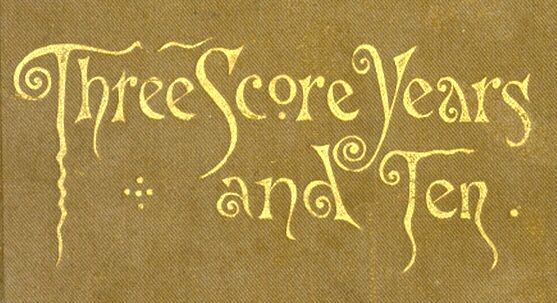 Three Score Years
and Ten.